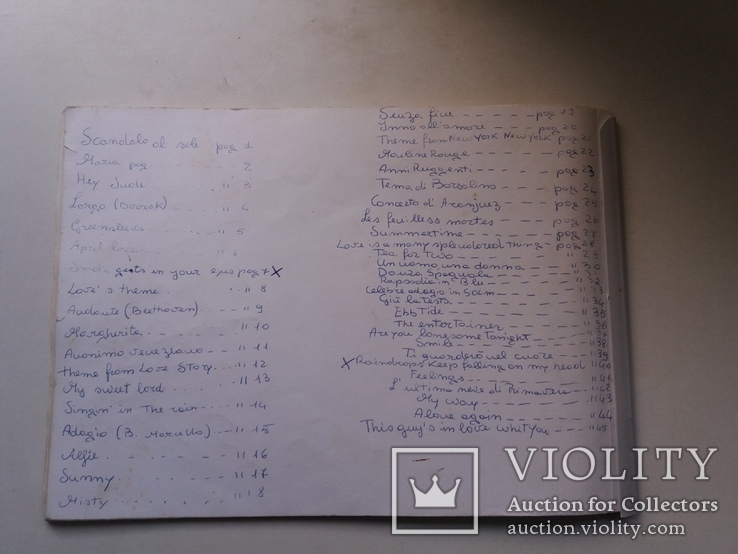 Scandalo al sole pag 1
Maria pag - - - - - - - 2
Hey Jude - - - - " 3
Largo (Dvorak) - - - " 4
Greensleeves - - - " 5
April love - - - " 6
Smoke gets in your eyes pag 7 X
Love's theme - - - - " 8
Andante (Beethoven) - - " 9
Margherita - - - - - " 10
Anonimo veneziano - - " 11
theme from Love Story - - - " 12
My sweet lord - - - " 13
Singin' in The rain - - - " 14
Adagio (B. Marcello) - - - " 15
Alfie - - - - - - " 16
Sunny - - - - - - " 17
Misty . . . . . . . " 18
Senza fine - - - - - pag 19
Inno all'amore - - - - pag 20
Theme from New York New York pag 21
Mouline Rouge - - - - pag 22
Anni Ruggenti - - - - pag 23
Tema di Borsalino - - - - pag 24
Concerto di Aranjuez - - pag 25
Les feuilless mortes - - - pag 26
Summertime - - - - - pag 27
Love is a many splendored thing - pag 28
Tea for Two - - - - " 29
Un uomo, una donna - - - " 30
Danza Spagnola - - - " 31
Rapsodia in Blu - - - " 32
Celebre adagio in Sol m - - - " 33
Giù la testa - - - - " 34
Ebb Tide - - - - - " 35
The enterTainer - - - - " 36
Are you lonesome Tonight - - " 37
Smile - - - - - " 38
Ti guarderò nel cuore - - - " 39
X Raindrops Keep falling on my head " 40
Feelings - - - - - " 41
L'ultima neve di Primavera - - " 42
My way - - - - - " 43
Alone again - - - - " 44
This guy's in love whit You - - - " 45
VIOLITY
Auction for Collectors
auction.violity.com